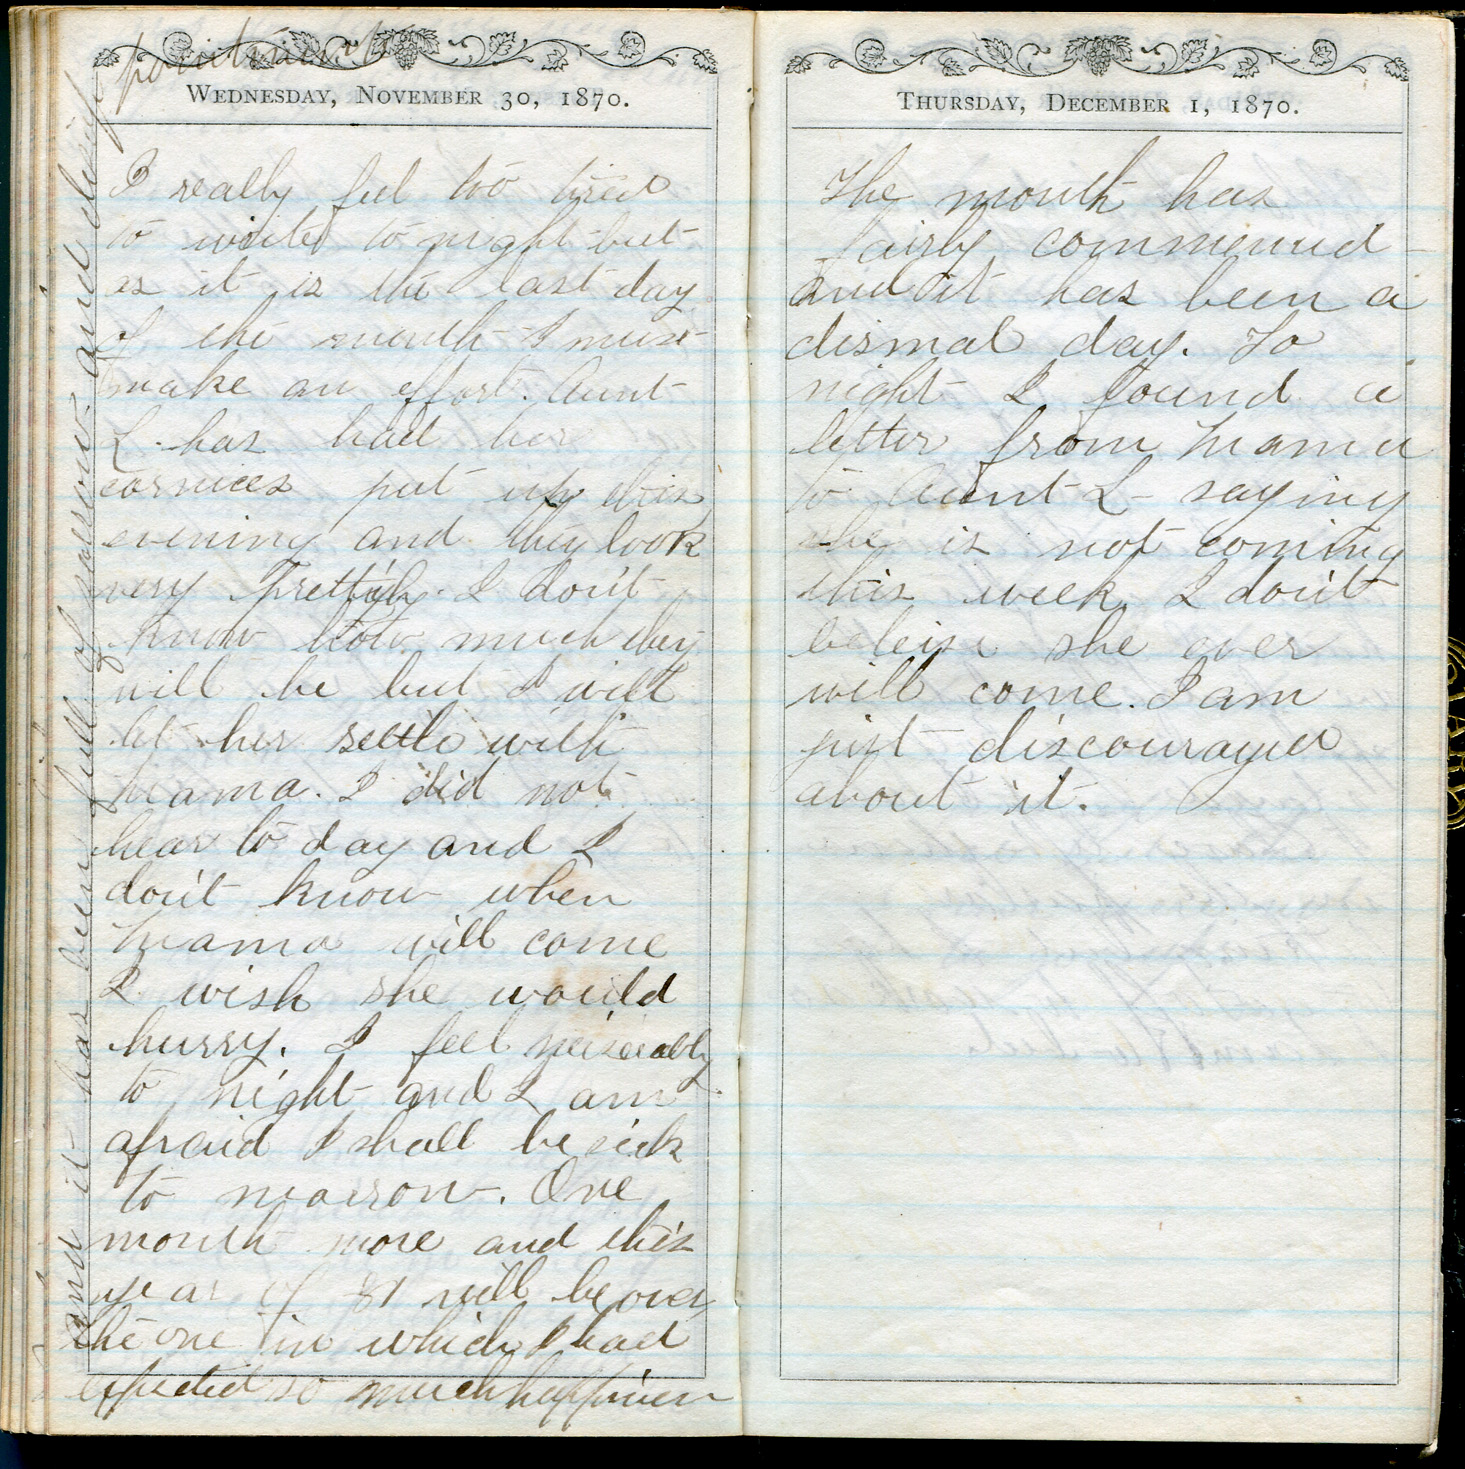 WEDNESDAY, NOVEMBER 30, 1870.
I really feel too tired
to write to night but
as it is the last day
of the month I must
make an effort. Aunt
L. has had her
cornices put up this
evening and they look
very Prettily. I don't
know how much they
will be but I will
let her settle with
Mama. I did not
hear to day and I
don't know when
Mama will come
I wish she would
hurry. I feel miserably
to night and I am
afraid I shall be sick
to morrow. One
month more and this
year of will be over
the one in which I had
expected so much happiness
and it has been full of sorrow and disap
pointment
THURSDAY, DECEMBER 1, 1870.
The month has
fairly commenced
and it has been a
dismal day. To
night I found a
letter from Mama
to Aunt L- saying
she is not coming
this week I don't
beleive she ever
will come. I am
just discouraged
about it.